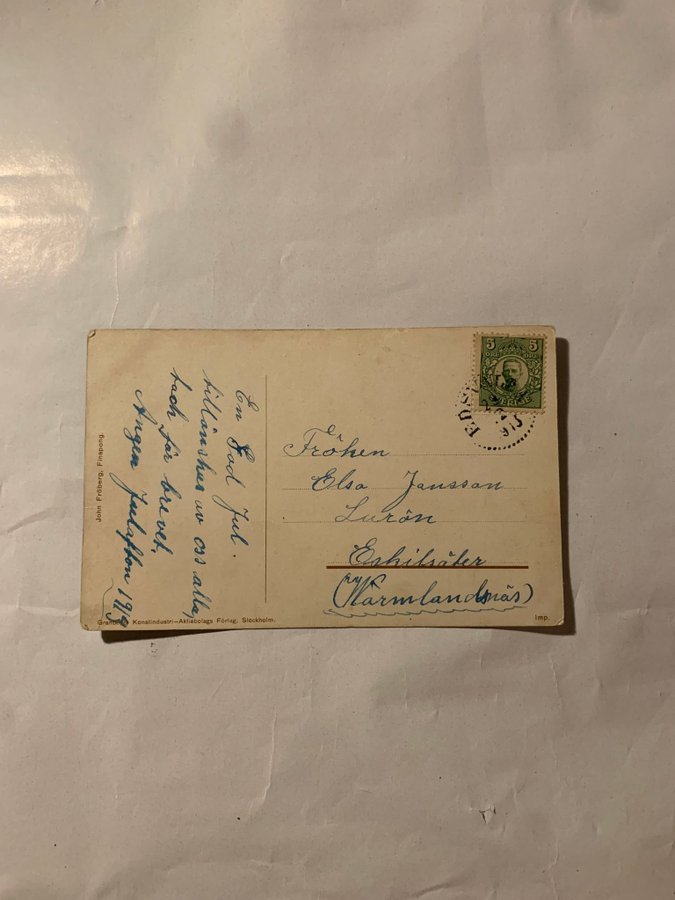 En God Jul
tillönskas av oss alla,
tack för brevet.
Julafton 1919
John Fröberg, Finspong.
Konstindustri—Aktiebolags Förlag, Stockholm.
Imp.
5 5
SVERIGE
Fröken
Elsa Jansson
Lurön
Eskilsäter
(Värmlandsnäs)